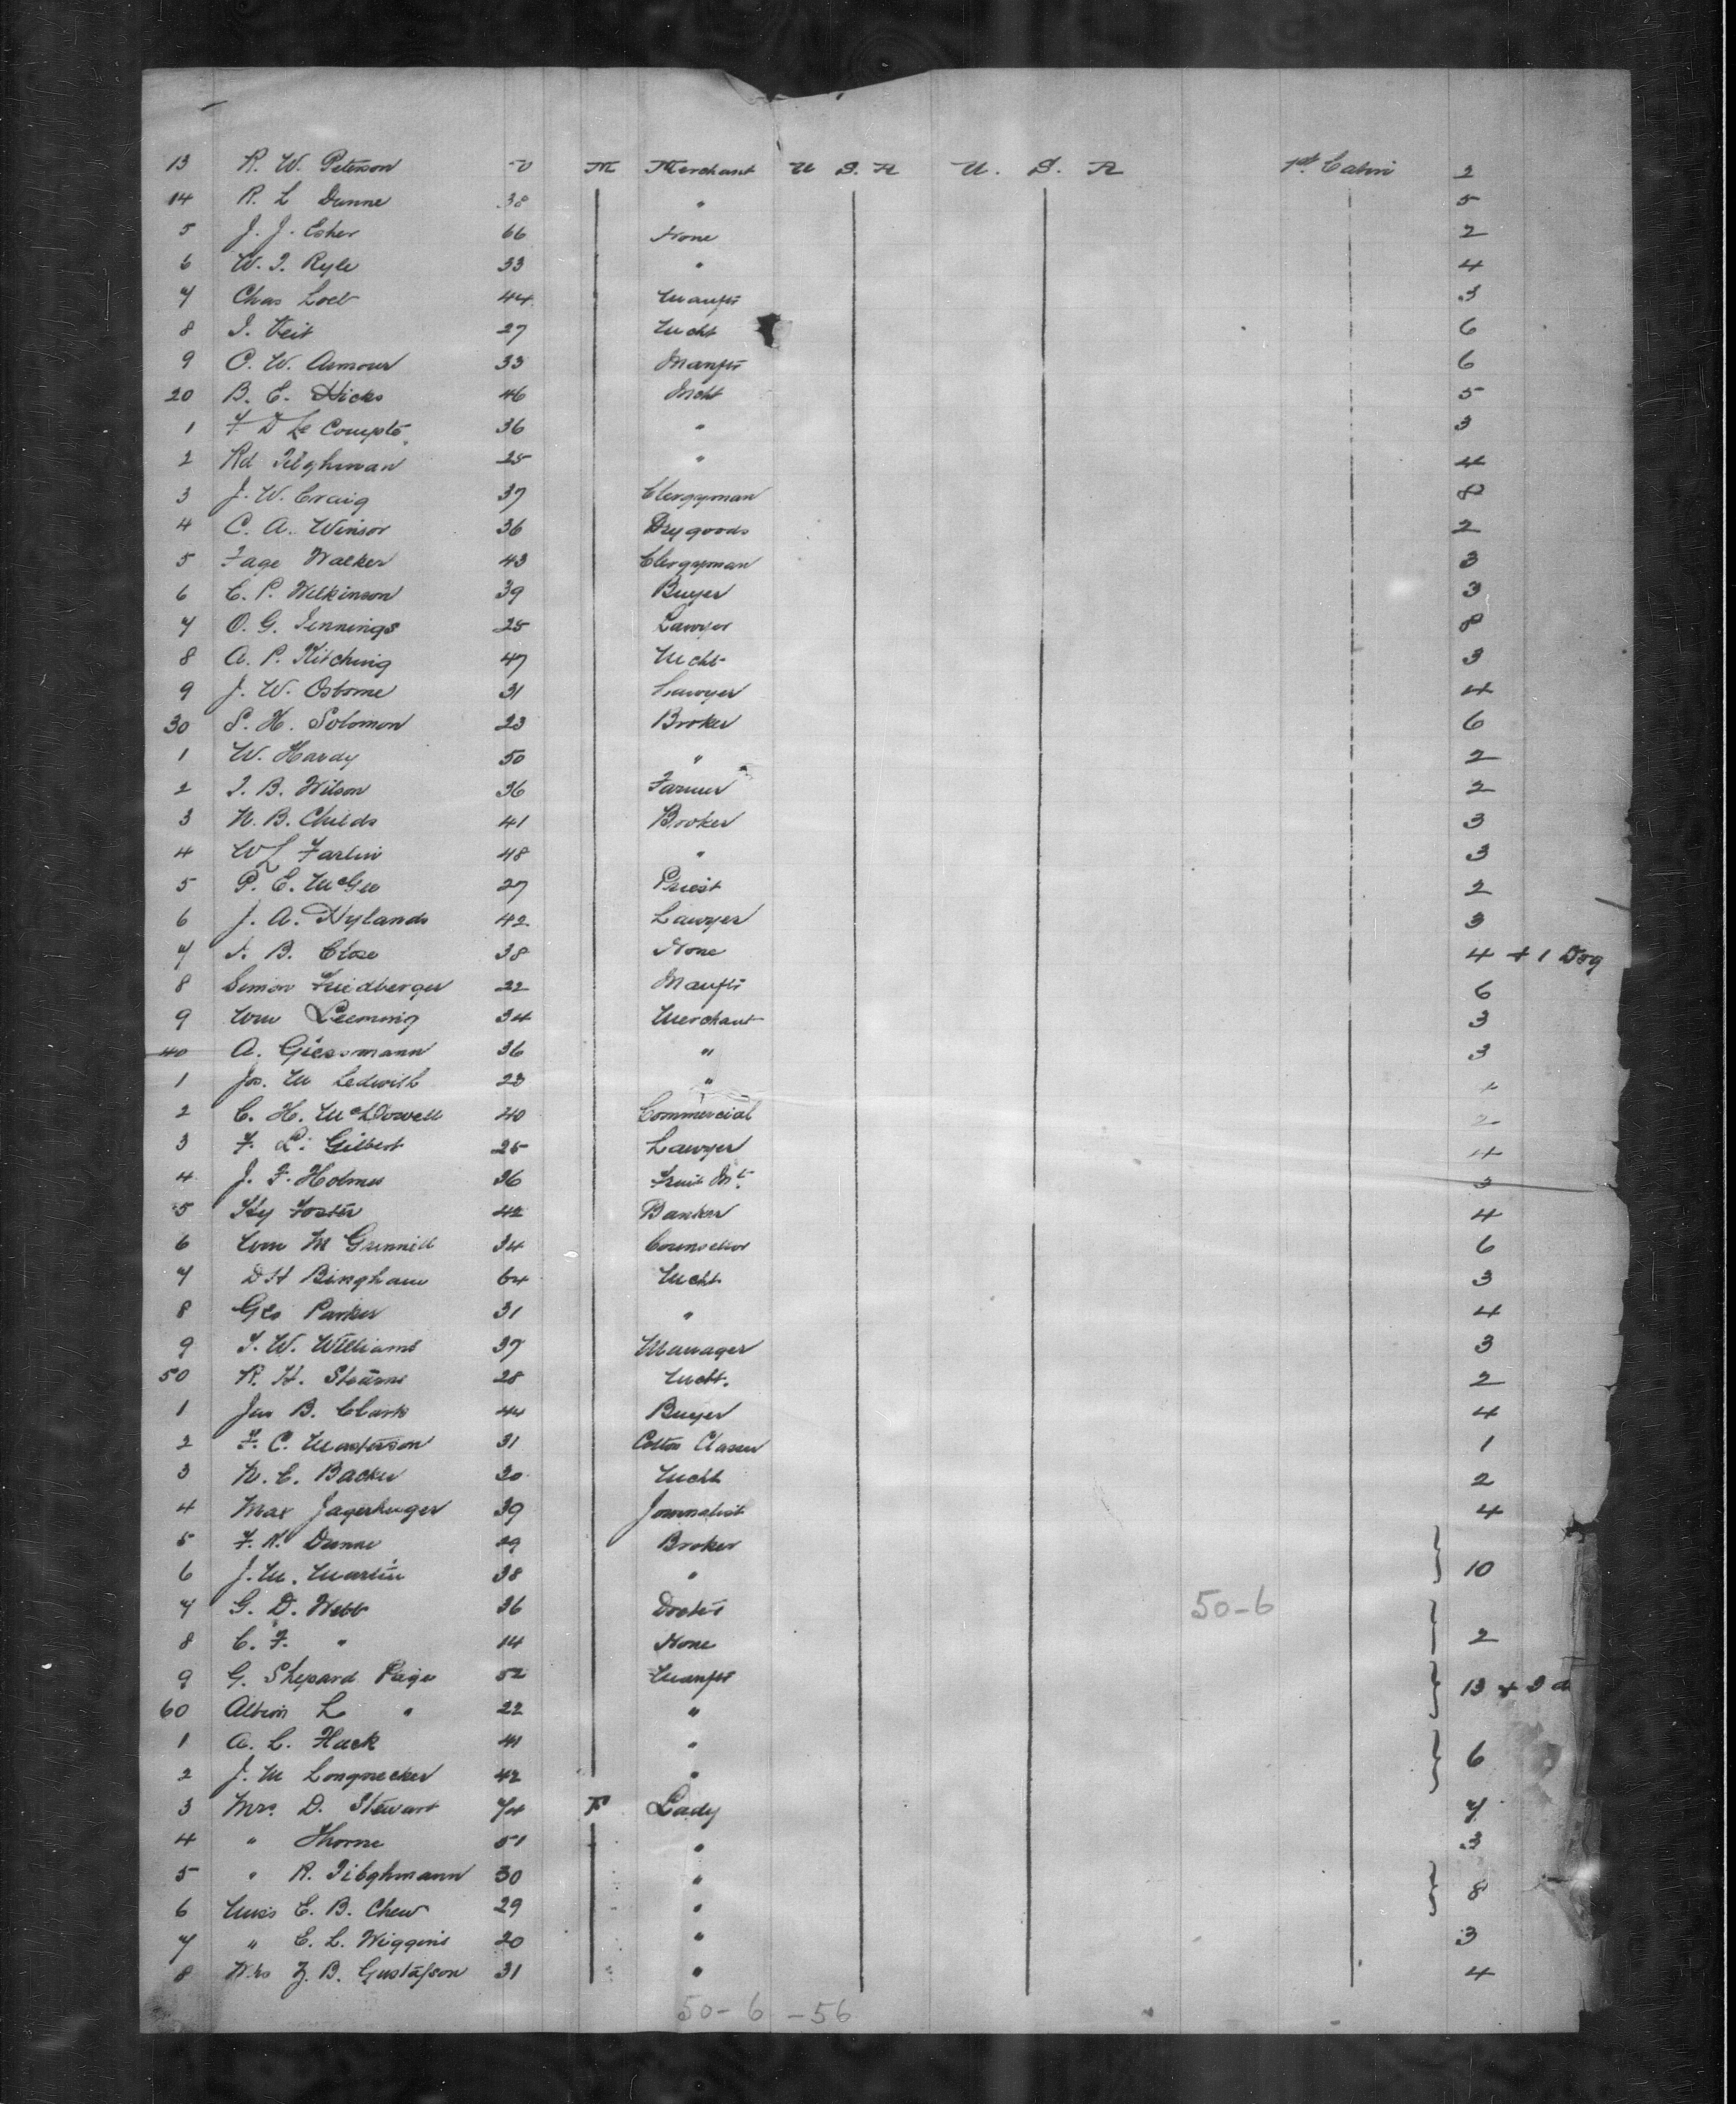 13 R. W. Peterson M Merchant U S. A U. S. A 1st Cabin 2
14 R. L Dunne 38 " 5
5 J. J. Esher 66 None 2
6 W. T. Ryle 33 " 4
7 Chas Loeb 44 Manftr 3
8 I. Veit 27 Mcht 6
9 C. W. Armour 33 Manftr 6
20 B. E. Hicks 46 Mcht 5
1 F D Le Compte 36 " 3
2 Rd Tilghman 25 " 4
3 J. W. Craig 37 Clergyman 8
4 C. A. Winsor 36 Drygoods 2
5 Fage Walker 43 Clergyman 3
6 E. P. Wilkinson 39 Buyer 3
7 O. G. Jennings 25 Lawyer 8
8 A. P. Kitching 47 Mcht 3
9 J. W. Osborne 31 Lawyer 4
30 S. H. Solomon 23 Broker 6
1 W. Hardy 50 " 2
2 J. B. Wilson 36 Farmer 2
3 W. B. Childs 41 Broker 3
4 W L Farlin 48 " 3
5 P. E. McGee 27 Priest 2
6 J. A. Hylands 42 Lawyer 3
7 J. B. Close 38 None 4 + 1 Dog
8 Simon Friedberger 22 Manftr 6
9 Wm Leeming 34 Merchant 3
40 A. Giessmann 36 " 3
1 Jos. M Ledwith 23 "
2 C. H. McDowell 40 Commercial 2
3 F. L. Gilbert 25 Lawyer 4
4 J. F. Holmes 36 Fruit Mt. 3
5 Hy Foster 42 Banker 4
6 Wm M Grinnell 34 Counsellor 6
7 D H Bingham 64 Mcht 3
8 Geo Parker 31 " 4
9 T. W. Williams 37 Manager 3
50 R. H. Stearns 28 Mcht. 2
1 Jas B. Clark 44 Buyer 4
2 F. C. Masterson 31 Cotton Classer 1
3 W. E. Backer 30 Mcht 2
4 Max Jagerhuger 39 Journalist 4
5 F. N. Dunne 29 Broker
6 J. M. Martin 38 " 10
7 G. D. Webb 36 Doctor 50-6
8 C. F. " 14 None 2
9 G. Shepard Page 52 Manftr 13 +
60 Albion L " 22 "
1 A. L. Hack 41 " 6
2 J. M Longnecker 42 "
3 Mrs D. Stewart 74 F Lady 7
4 " Thorne 51 " 3
5 " R. Tilghmann 30 " 8
6 Miss E. B. Chew 29 "
7 " E. L. Wiggins 20 " 3
8 Mrs Z. B. Gustafson 31 " 4
50-6 -56